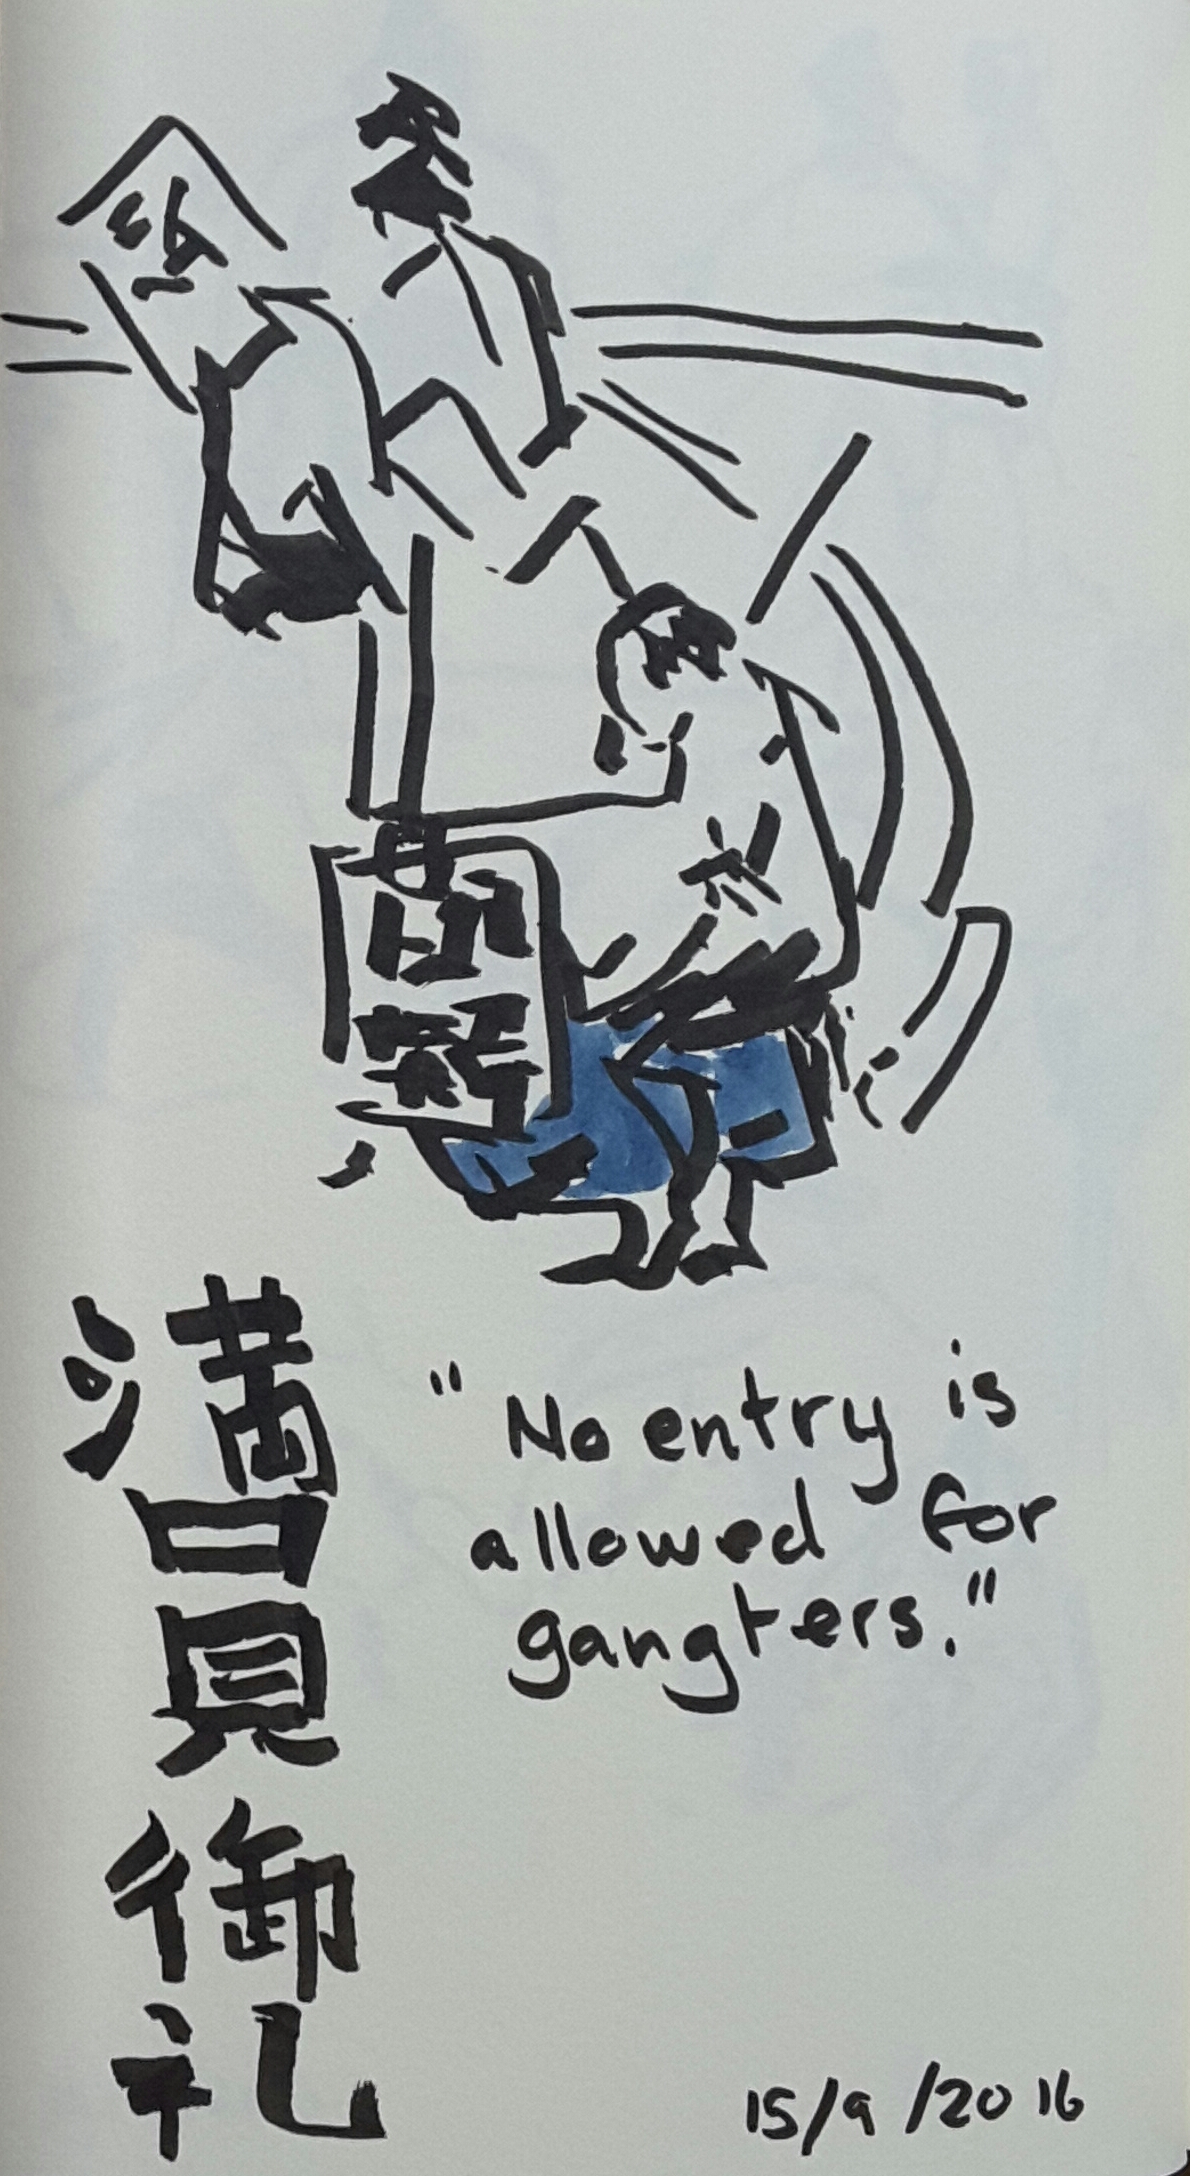 満員御礼
"No entry is
allowed for
gangters."
15/9/2016